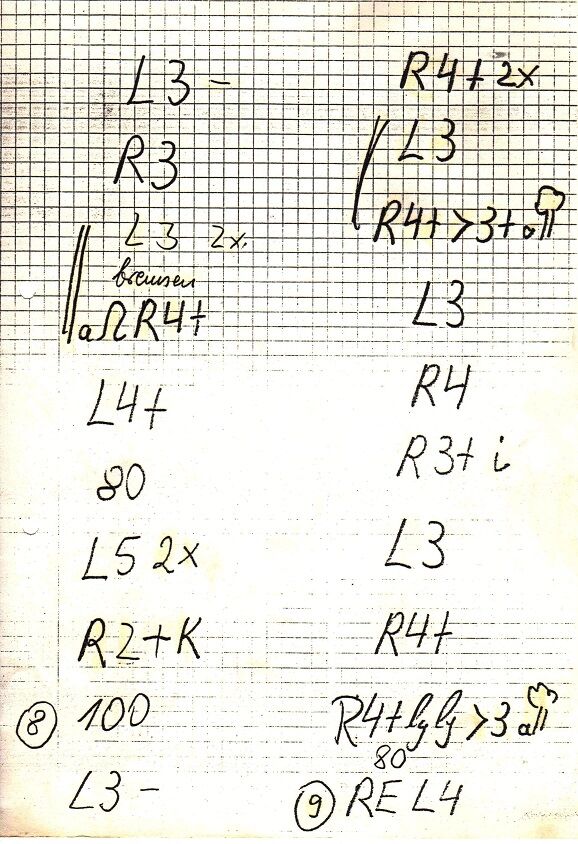 L3 -
R3
L3 2x
bremsen
a Ω R4+
L4+
80
L5 2x
R2+K
8 100
L3 -
R4+ 2x
L3
R4+ > 3+ a
L3
R4
R3+ i
L3
R4+
R4+ lg lg > 3 a
80
9 RE L4